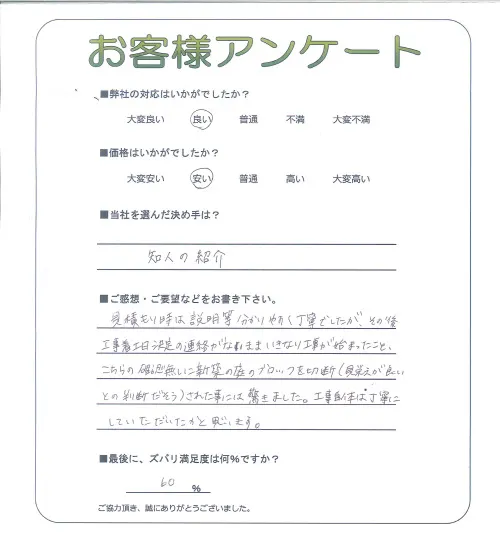 お客様アンケート
■弊社の対応はいかがでしたか？
大変良い 良い 普通 不満 大変不満
■価格はいかがでしたか？
大変安い 安い 普通 高い 大変高い
■当社を選んだ決め手は？
知人の紹介
■ご感想・ご要望などをお書き下さい。
見積もり時は説明等分かりやすく丁寧でしたが、その後
工事着工日決定の連絡がないままいきなり工事が始まったこと、
こちらの確認無しに新築の庭のブロックを切断(見栄えが良い
との判断だそう)された事には驚きました。工事自体は丁寧に
していただいたかと思います。
■最後に、ズバリ満足度は何%ですか？
60 %
ご協力頂き、誠にありがとうございました。